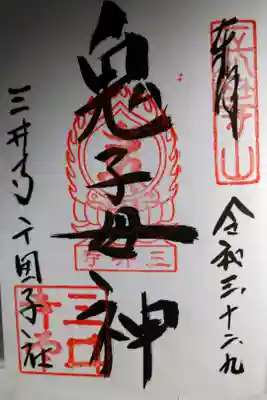 奉拝
長等山
令和三 十二 九
鬼子母神
三井寺
三井寺 千団子社